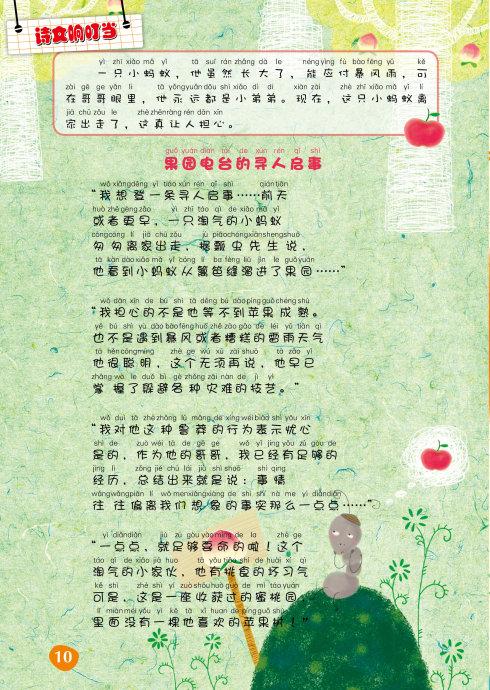 诗文响叮当
yì zhī xiǎo mǎ yǐ tā suī rán zhǎng dà le néng yìng fù bào fēng yǔ kě
一只小蚂蚁，他虽然长大了，能应付暴风雨，可
zài gē ge yǎn li tā yǒng yuǎn dōu shì xiǎo dì di xiàn zài zhè zhī xiǎo mǎ yǐ lí
在哥哥眼里，他永远都是小弟弟。现在，这只小蚂蚁离
jiā chū zǒu le zhè zhēn ràng rén dān xīn
家出走了，这真让人担心。
guǒ yuán diàn tái de xún rén qǐ shì
果园电台的寻人启事
wǒ xiǎng dēng yì tiáo xún rén qǐ shì qián tiān
“我想登一条寻人启事……前天
huò zhě gèng zǎo yì zhī táo qì de xiǎo mǎ yǐ
或者更早，一只淘气的小蚂蚁
cōng cōng lí jiā chū zǒu jù piáo chóng xiān sheng shuō
匆匆离家出走，据瓢虫先生说，
tā kàn dào xiǎo mǎ yǐ cóng lí ba fèng liū jìn le guǒ yuán
他看到小蚂蚁从篱笆缝溜进了果园……”
wǒ dān xīn de bú shì tā děng bú dào píng guǒ chéng shú
“我担心的不是他等不到苹果成熟。
yě bú shì yù dào bào fēng huò zhě zāo gāo de léi yǔ tiān qì
也不是遇到暴风或者糟糕的雷雨天气
tā hěn cōng míng zhè ge wú xū zài shuō tā zǎo yǐ
他很聪明，这个无须再说，他早已
zhǎng wò le duǒ bì gè zhǒng zāi nàn de jì yì
掌握了躲避各种灾难的技艺。”
wǒ duì tā zhè zhǒng lǔ mǎng de xíng wéi biǎo shì yōu xīn
“我对他这种鲁莽的行为表示忧心
shì de zuò wéi tā de gē ge wǒ yǐ jīng yǒu zú gòu de
是的，作为他的哥哥，我已经有足够的
jīng lì zǒng jié chū lái jiù shì shuō shì qing
经历，总结出来就是说：事情
wǎng wǎng piān lí wǒ men xiǎng xiàng de shì shí nà me yì diǎn diǎn
往往偏离我们想象的事实那么一点点……”
yì diǎn diǎn jiù zú gòu yào mìng de la zhè ge
“一点点，就足够要命的啦！这个
táo qì de xiǎo jiā huo tā yǒu tiāo shí de huài xí qì
淘气的小家伙，他有挑食的坏习气
kě shì zhè shì yí zuò shōu huò guo de mì táo yuán
可是，这是一座收获过的蜜桃园，
lǐ miàn méi yǒu yì kē tā xǐ huan de píng guǒ shù
里面没有一棵他喜欢的苹果树！”
10